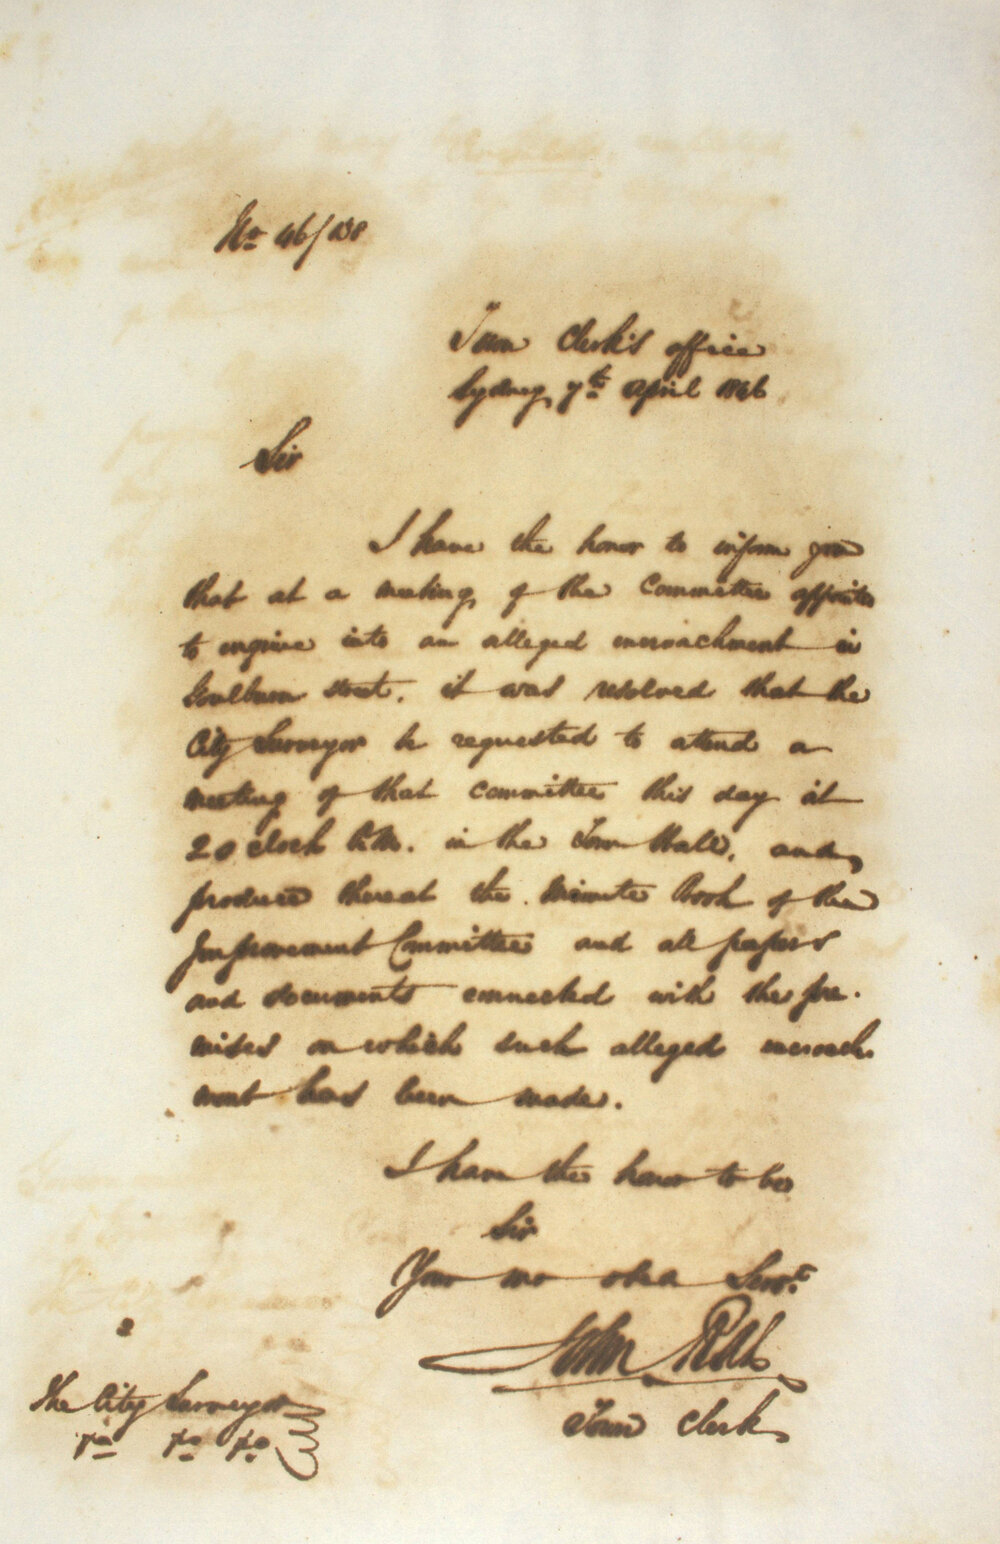 No 46/138
Town Clerk's office
Sydney 7th April 1846
Sir
I have the honor to inform you
that at a meeting of the Committee appointed
to enquire into an alleged encroachment in
Goulburn street, it was resolved that the
City Surveyor be requested to attend a
meeting of that committee this day at
2 o'clock P.M. in the Town Hall, and
produce thereat the Minute Book of the
Improvement Committee and all papers
and documents connected with the pre.
mises on which such alleged encroach
ment has been made.
I have the honor to be
Sir
Your mo obed Servt.
John Rae
Town Clerk
The City Surveyor